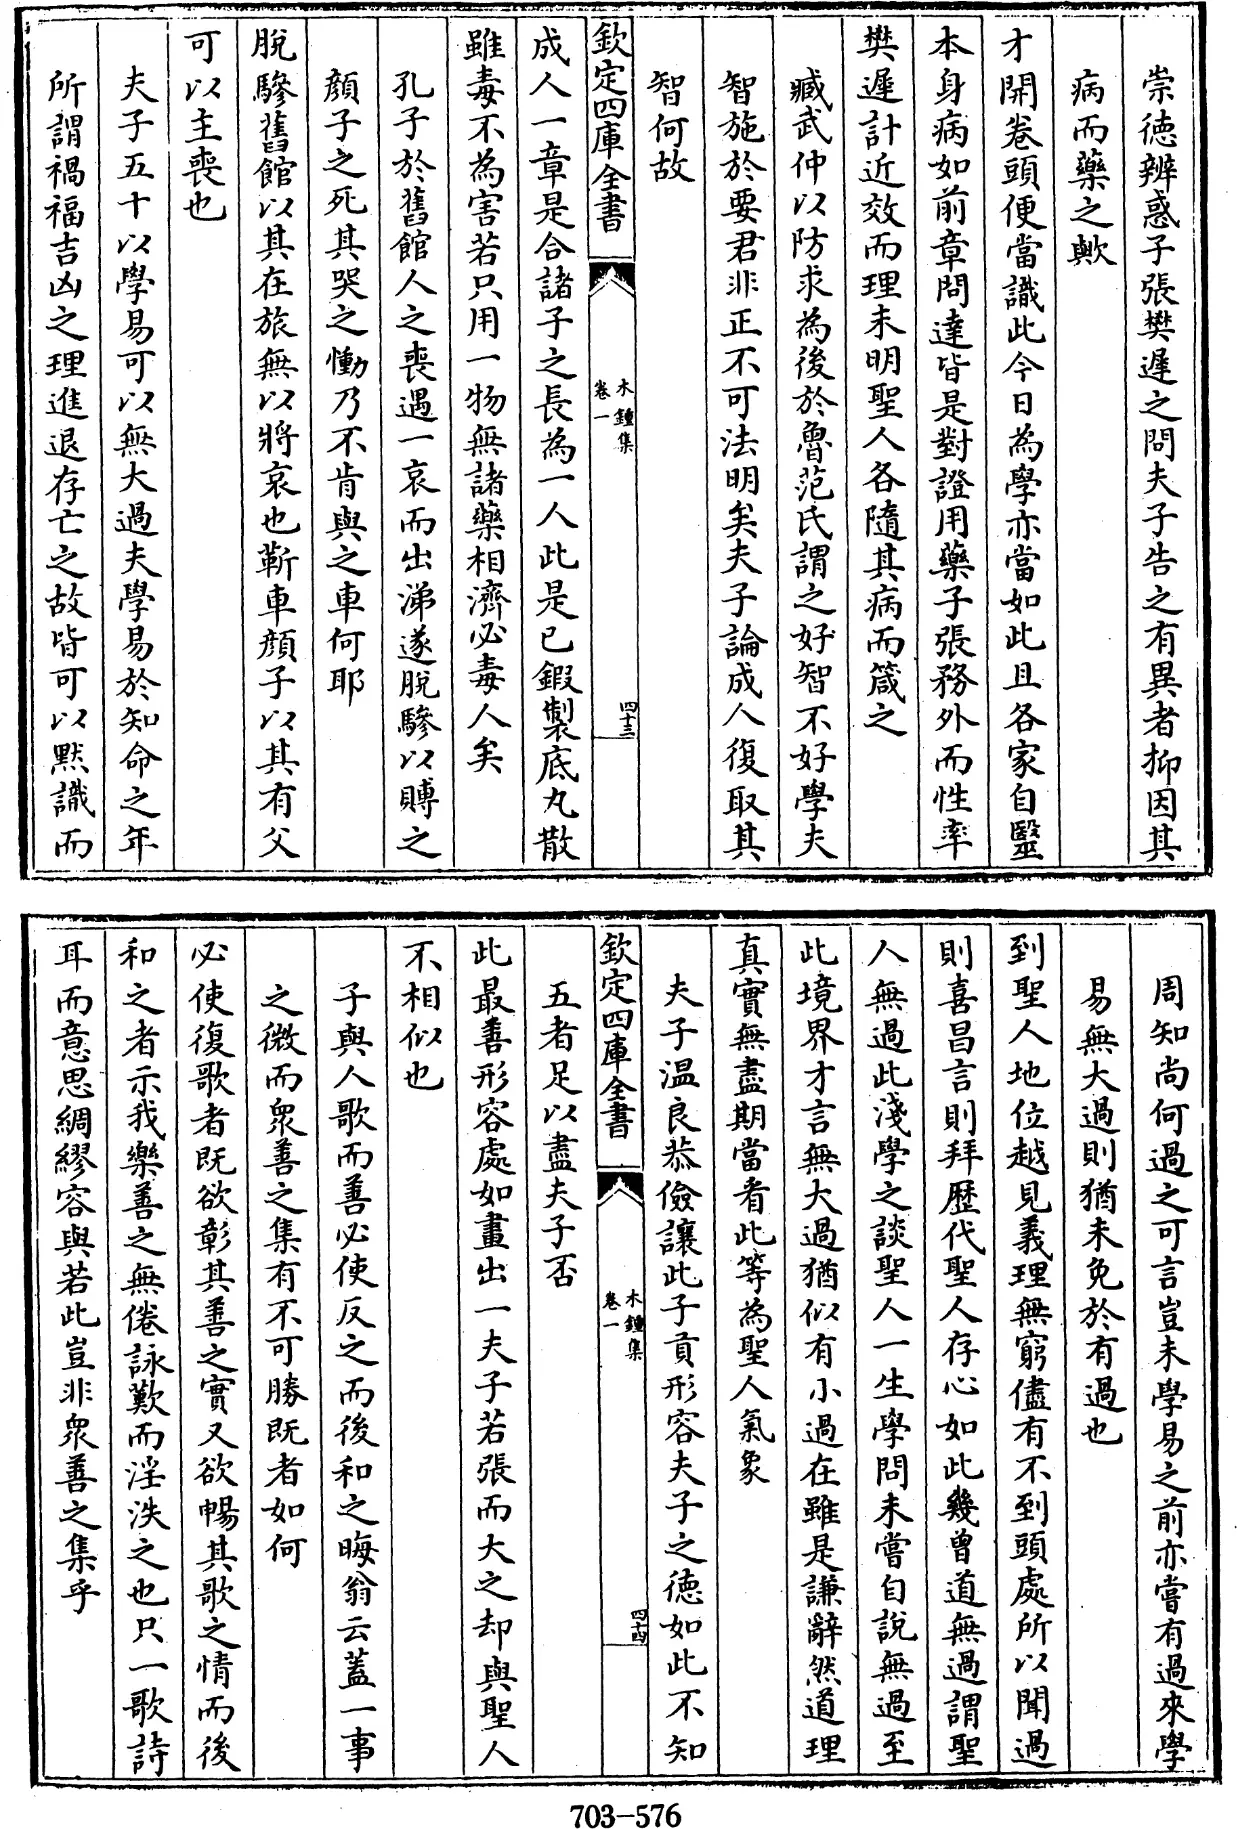 崇徳辨惑子張樊遲之問夫子告之有異者抑因其
病而藥之歟
才開卷頭便當識此今日為學亦當如此且各家自毉
本身病如前章問達皆是對證用藥子張務外而性率
樊遲計近效而理未明聖人各隨其病而箴之
臧武仲以防求為後於魯范氏謂之好智不好學夫
智施於要君非正不可法明矣夫子論成人復取其
智何故
欽定四庫全書
木鍾集
卷一
四十三
成人一章是合諸子之長為一人此是已鍜製底丸散
雖毒不為害若只用一物無諸藥相濟必毒人矣
孔子於舊館人之喪遇一哀而出涕遂脫驂以賻之
顔子之死其哭之慟乃不肯與之車何耶
脫驂舊館以其在旅無以將哀也靳車顔子以其有父
可以主喪也
夫子五十以學易可以無大過夫學易於知命之年
所謂禍福吉凶之理進退存亡之故皆可以黙識而
周知尚何過之可言豈未學易之前亦嘗有過來學
易無大過則猶未免於有過也
到聖人地位越見義理無窮儘有不到頭處所以聞過
則喜昌言則拜歴代聖人存心如此幾曾道無過謂聖
人無過此淺學之談聖人一生學問未嘗自說無過至
此境界才言無大過猶似有小過在雖是謙辭然道理
真實無盡期當看此等為聖人氣象
夫子温良恭儉讓此子貢形容夫子之徳如此不知
欽定四庫全書
木鍾集
卷一
四十四
五者足以盡夫子否
此最善形容處如畫出一夫子若張而大之却與聖人
不相似也
子與人歌而善必使反之而後和之晦翁云葢一事
之微而衆善之集有不可勝既者如何
必使復歌者既欲彰其善之實又欲暢其歌之情而後
和之者示我樂善之無倦詠歎而淫泆之也只一歌詩
耳而意思綢繆容與若此豈非衆善之集乎
703-576